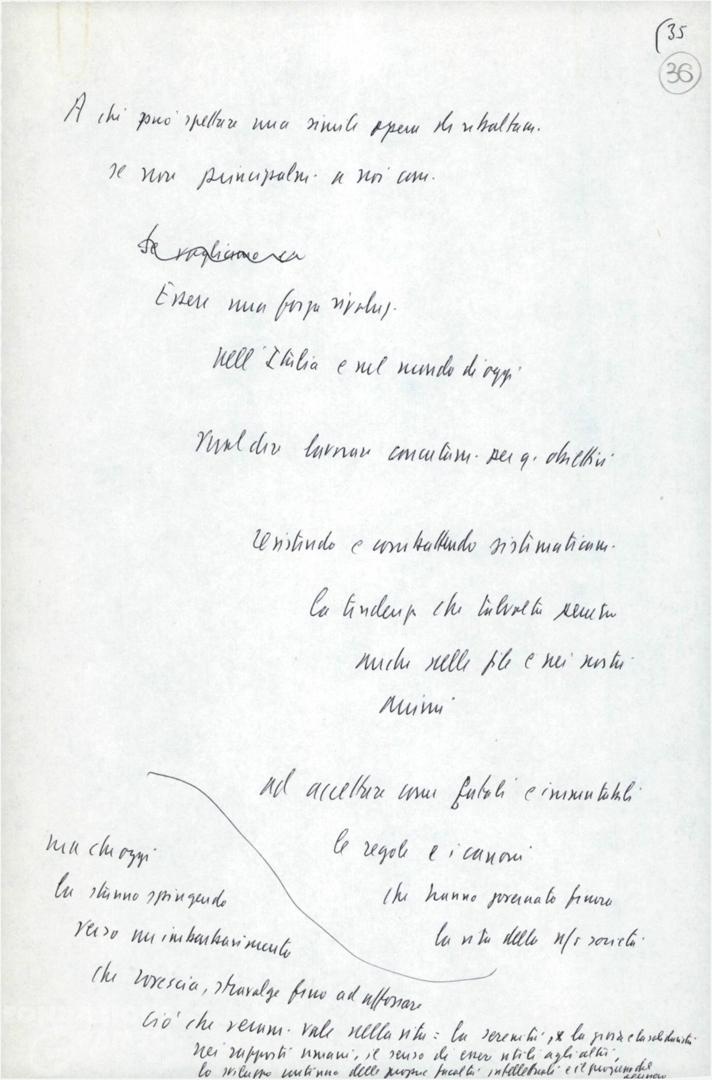 35
36
A chi può spettare una simile opera di ribaltam.
se non principalm. a noi com.
Se vogliamo
Essere una forza rivoluz.
nell'Italia e nel mondo di oggi
vuol dire lavorare concretam. per q. obiettivi
resistendo e combattendo sistematicam.
la tendenza che talvolta penetra
anche nelle file e nei nostri
animi
ad accettare come fatali e immutabili
le regole e i canoni
che hanno governato finora
la vita della n/s società
ma che oggi
la stanno spingendo
verso un imbarbarimento
che rovescia, stravolge fino ad affossare
ciò che veram. vale nella vita: la serenità, la gioia e la solidarietà
nei rapporti umani, il senso di esser utili agli altri,
lo sviluppo continuo delle proprie facoltà intellettuali e il